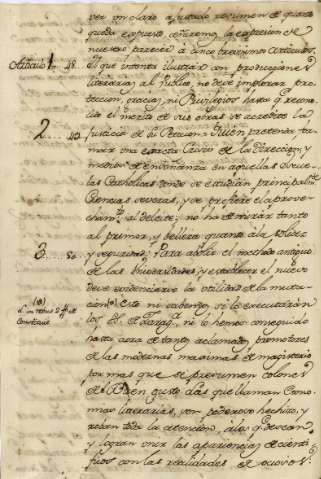 ver un claro, y ajustado resumen de quanto
queda expuesto ceñiremos la expresion de
nuestro parecer à cinco brevisimos articulos.
Articulo 1. 48. El que intenta ilustrar con producciones
literarias al Publico, no deve implorar pro-
teccion, gracias, ni Privilegios hasta que recono-
cido el merito de sus obras se acredite la
Justicia de su Peticion.
2. 49. Quien pretenda for-
mar una exacta de la Direccion, y
metodo de enseñanza en aquellas Escue-
las Catholicas donde se estudian principalmte
Ciencias severas, y se prefiere el aprove-
chamto al deleite; no ha de mirar tanto
al primor, y belleza quanto à la solidez
y seguridad.
3. 50. Para abolir el methodo antiguo
de las Universidades, y establecer el nuevo
deve evidenciarse la utilidad de la muta-
cion (a). Este ni sabemos si lo executarán
(a)
L. in rebus 2 ff. de
Constitut.
los de Zarag.a ni lo hemos conseguido
hasta aora de tantos aclamados promotores
de las modernas maximas de magisterio
por mas que se presumen colones
del Buen gusto. Las que llaman Econo-
mias literarias, son poderoso hechizo, y
roban toda la atencion, à los que desean,
y logran unir las apariencias de cienti-
ficos con las realidades de ociosos.